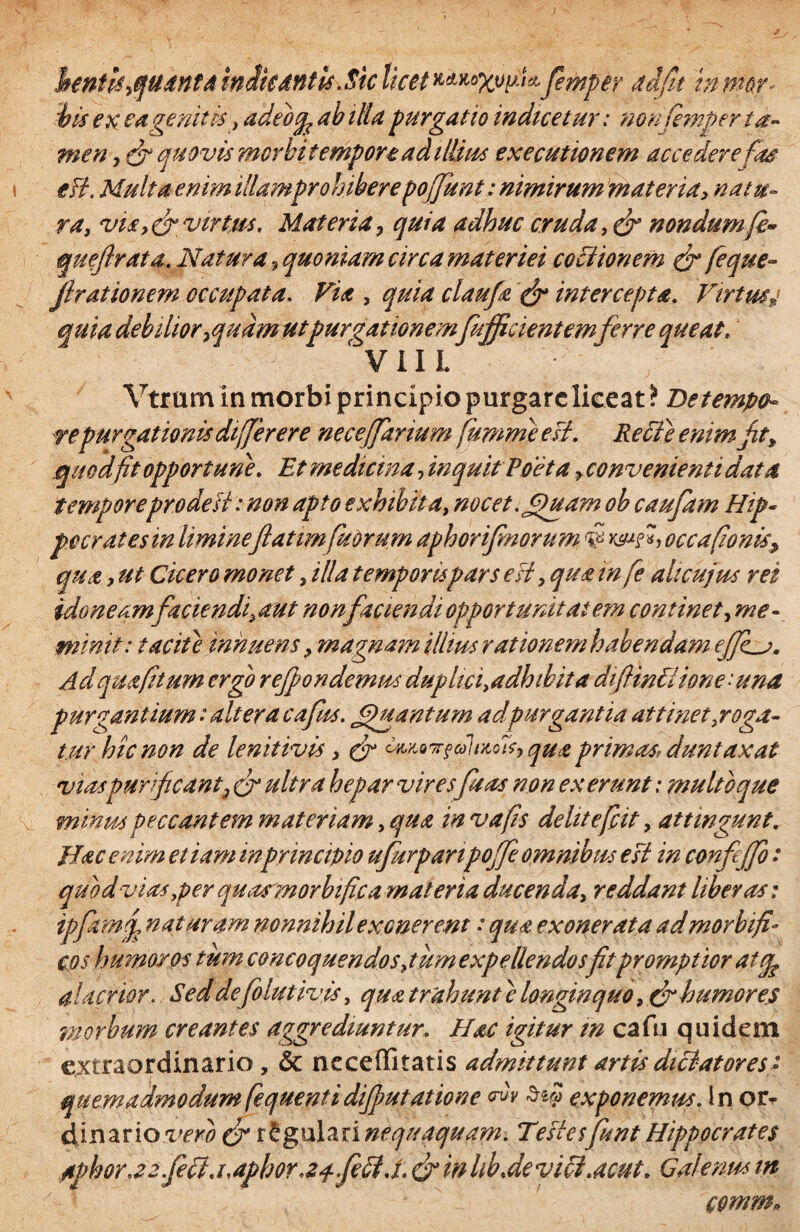 hentis,quanta indicantis. Sic licet κακοχυμία semper adsit in mor-
bis ex ea genitis, adeoq; ab illa purgatio indicetur: non semper ta-
men, & quovis morbi tempore ad illius executionem accedere fas
est. Multa enim illam prohibere possunt: nimirum materia, natu-
ra, viæ, & virtus. Materia, quia adhuc cruda, & nondum se-
questrata. Natura, quoniam circa materiei coctionem & seque-
strationem occupata. Viæ, quia clausæ & interceptæ. Virtus,
quia debilior, quàm ut purgationem sufficientem ferre queat.
VIII.
Vtrum in morbi principio purgare liceat? De tempo-
re purgationis disserere necessarium summè est. Rectè enim fit,
quod fit opportunè. Et medicina, inquit Poëta, convenienti data
tempore prodest: non apto exhibita, nocet. Quam ob causam Hip-
pocrates in limine statim suorum aphorismorum τῦ καιρῦ, occasionis,
quæ, ut Cicero monet, illa temporis pars est, quæ in se alicujus rei
idoneam faciendi, aut non faciendi opportunitatem continet, me-
minit: tacitè innuens, magnam illius rationem habendam esse.
Ad quæsitum ergò respondemus duplici, adhibita distinctione: una
purgantium: altera casus. Quantum ad purgantia attinet, roga-
tur hîc non de lenitivis, & ἐκκοπρωτικοῖς, quæ primas duntaxat
vias purificant, & ultra hepar vires suas non exerunt: multòque
minus peccantem materiam, quæ in vasis delitescit, attingunt.
Hæc enim etiam in principio usurpari posse omnibus est in confesso:
quòd vias, per quas morbifica materia ducenda, reddant liberas:
ipsamq; naturam nonnihil exonerent: quæ exonerata ad morbifi-
cos humoros tùm concoquendos, tùm expellendos fit promptior atq;
alacrior. Sed de solutivis, quæ trahunt è longinquo, & humores
morbum creantes aggrediuntur. Hæc igitur in casu quidem
extraordinario, & necessitatis admittunt artis dictatores:
quemadmodum sequenti disputatione σὺν θεῷ exponemus. In or-
dinario verò & regulari nequaquam. Testes sunt Hippocrates
aphor. 22. sect. 1. aphor. 24. sect. 1. & in lib. de vict. acut. Galenus in
comm.